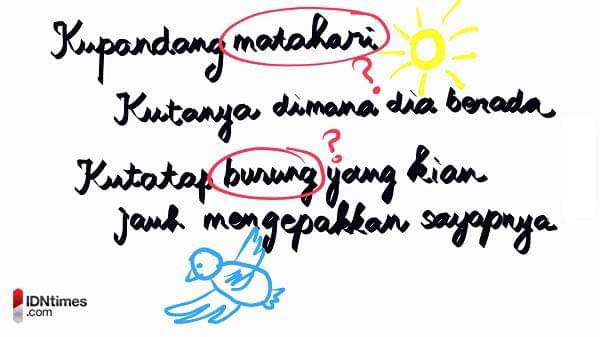 Kupandang matahari
?
Kutanya dimana dia berada
?
Kutatap burung yang kian
jauh mengepakkan sayapnya
IDNtimes
.com